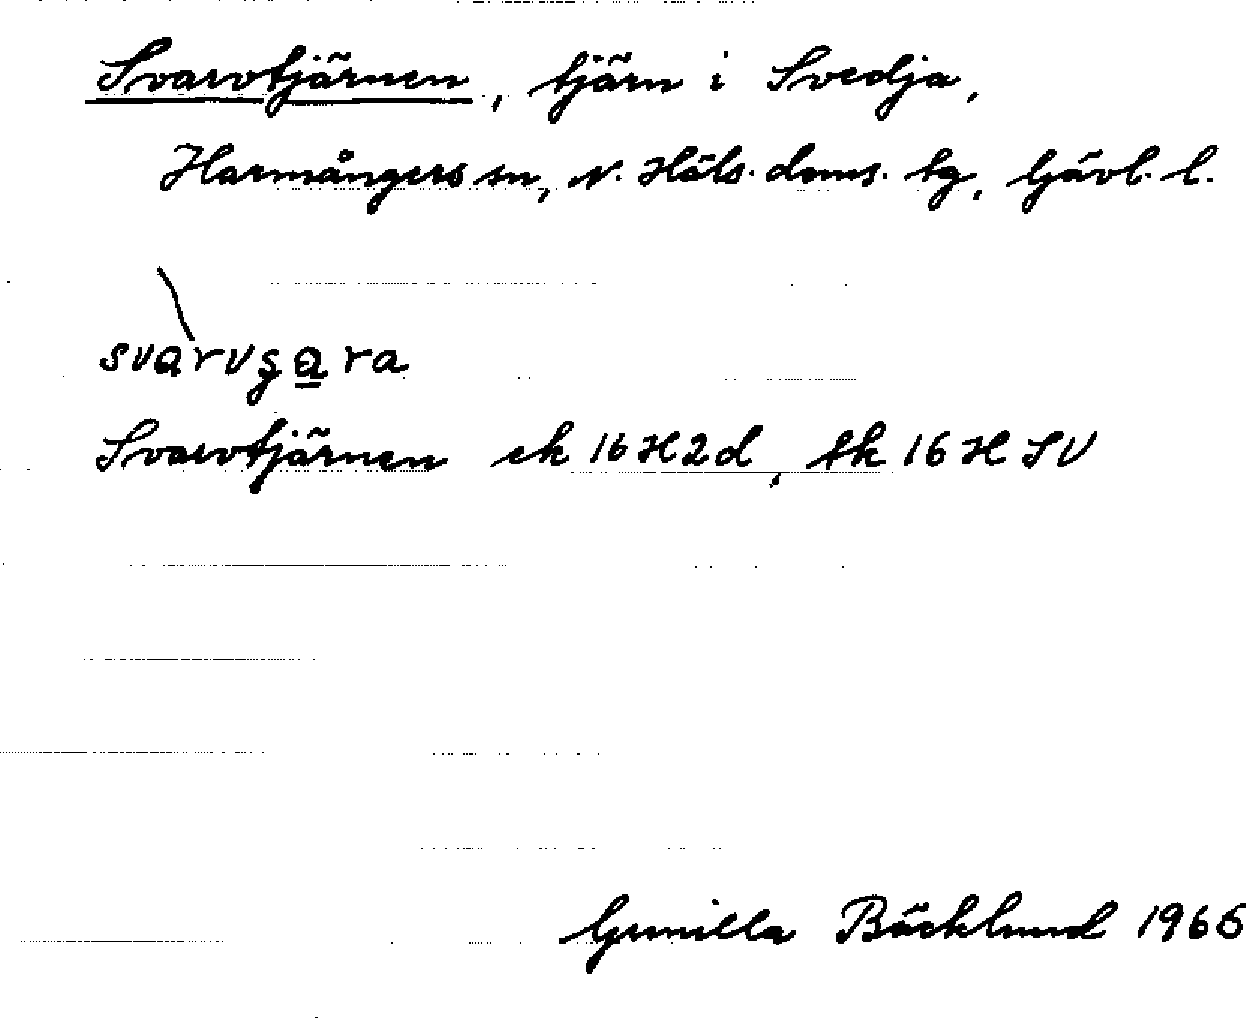 Svarvtjärnen, tjärn i Svedja,
Harmångers sn, N. Häls. doms. tg, Gävl. l.
svarvʒa̲ra
Svarvtjärnen ek 16H2d, tk 16H SV
Gunilla Bäcklund 1966